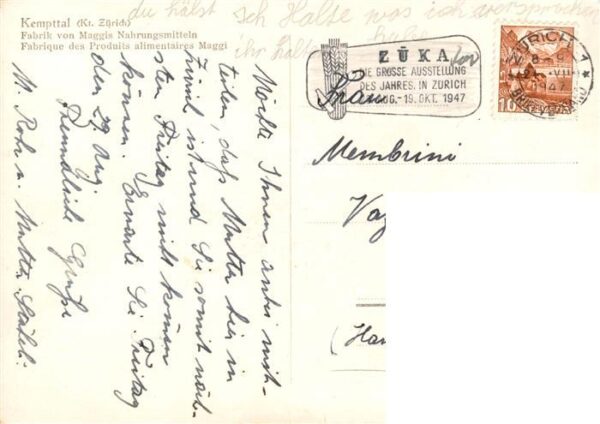 Kempttal (Kt. Zürich)
Fabrik von Maggis Nahrungsmitteln
Fabrique des Produits alimentaires Maggi
du hälst Ich Halte was ich versprochen
habe
ihr halte
ZÜKA
DIE GROSSE AUSSTELLUNG
DES JAHRES, IN ZÜRICH
AUG.-19. OKT. 1947
ZÜRICH 1
8
VII
1947
BRIEFVERSAND
10
Frau
Membrini
(Ha
Möchte Ihnen mit-
teilen, daß Mutter hier in
Zürich ist und Sie somit näch-
sten Freitag nicht kommen
können. Erwarte Sie Freitag
den 29. Aug.
Freundliche Grüße
M. Rohr u. Mutter